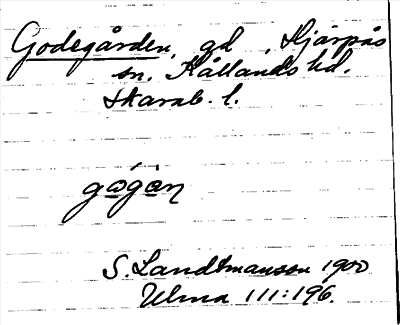 Godegården, gd, Hjärpås
sn. Kållands hd.
Skarab. l.
gógòn
S. Landtmanson 1900
Ulma 111:196.